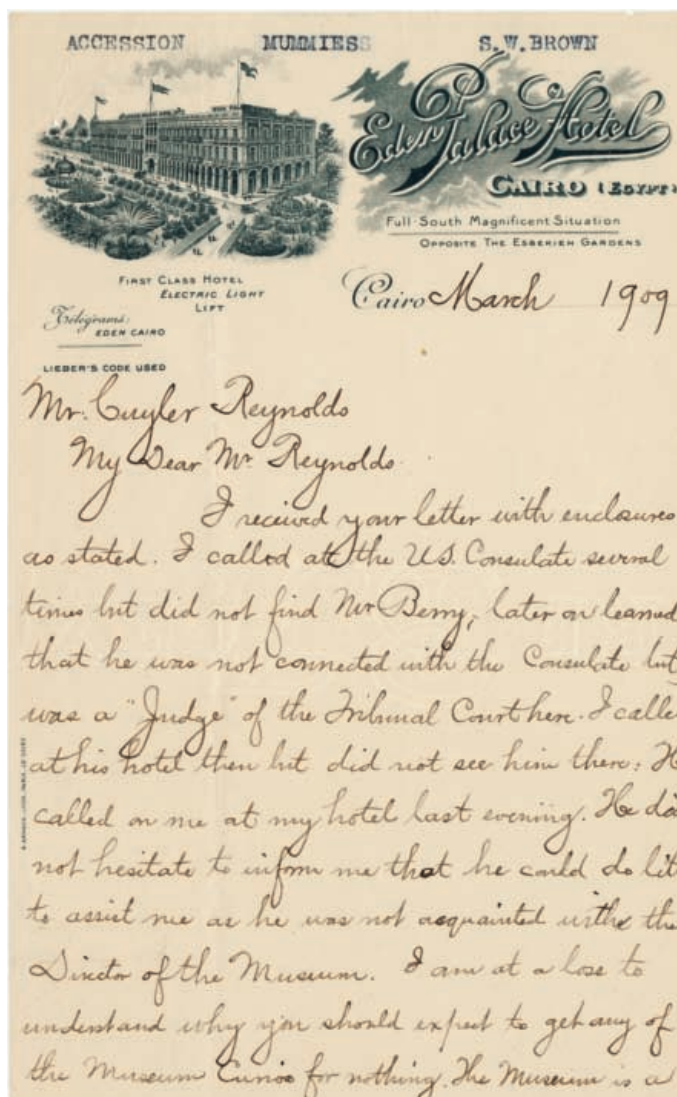 ACCESSION MUMMIES S.W.BROWN
Eden Palace Hotel
CAIRO (EGYPT)
Full South Magnificent Situation
OPPOSITE THE ESBEKIEH GARDENS
FIRST CLASS HOTEL
ELECTRIC LIGHT
LIFT
Telegrams:
EDEN CAIRO
LIEBER'S CODE USED
Cairo March 1909
Mr. Cuyler Reynolds
My Dear Mr Reynolds.
I received your letter with enclosures
as stated. I called at the U.S. Consulate several
times but did not find Mr Berry, later on learned
that he was not connected with the Consulate but
was a "Judge" of the Tribunal Court here. I calle
at his hotel then but did not see him there. H
called on me at my hotel last evening. He did
not hesitate to inform me that he could do lit
to assist me as he was not acquainted with the
Director of the Museum. I am at a lose to
understand why you should expect to get any of
the Museum Curios for nothing. The Museum is a